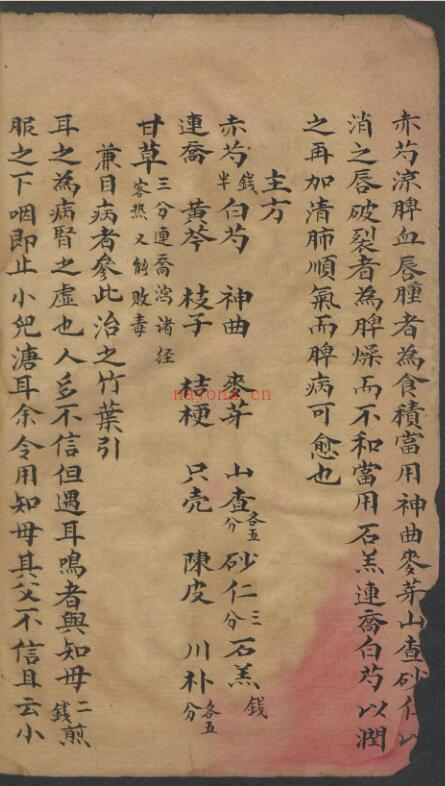 赤芍涼脾血唇腫者為食積當用神曲麥芽山查砂仁以
消之唇破裂者為脾燥而不和當用石羔連喬白芍以潤
之再加清肺順氣而脾病可愈也
主方
赤芍錢半白芍 神曲 麥芽 山查各五分砂仁三分石羔錢
連喬 黃芩 枝子 桔梗 只壳 陳皮 川朴各五分
甘草三分連喬瀉诸径客热又能败毒
兼目病者參此治之竹葉引
耳之為病腎之虛也人多不信但遇耳鳴者與知母二錢煎
服之下咽即止小兒溏耳余令用知母其父不信且云小
nayona.cn